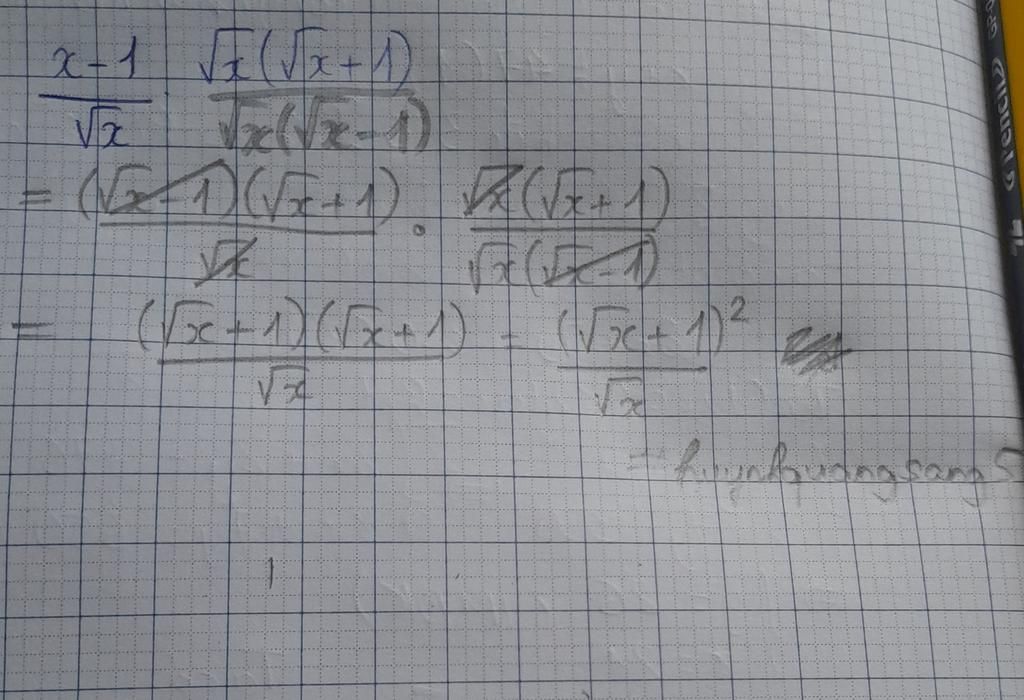 x-1/√x √x(√x+1)/√x(√x-1)
= (√x-1)(√x+1)/√x . √x(√x+1)/√x(√x-1)
= (√x+1)(√x+1)/√x = (√x+1)²/√x
huynhquangsang5